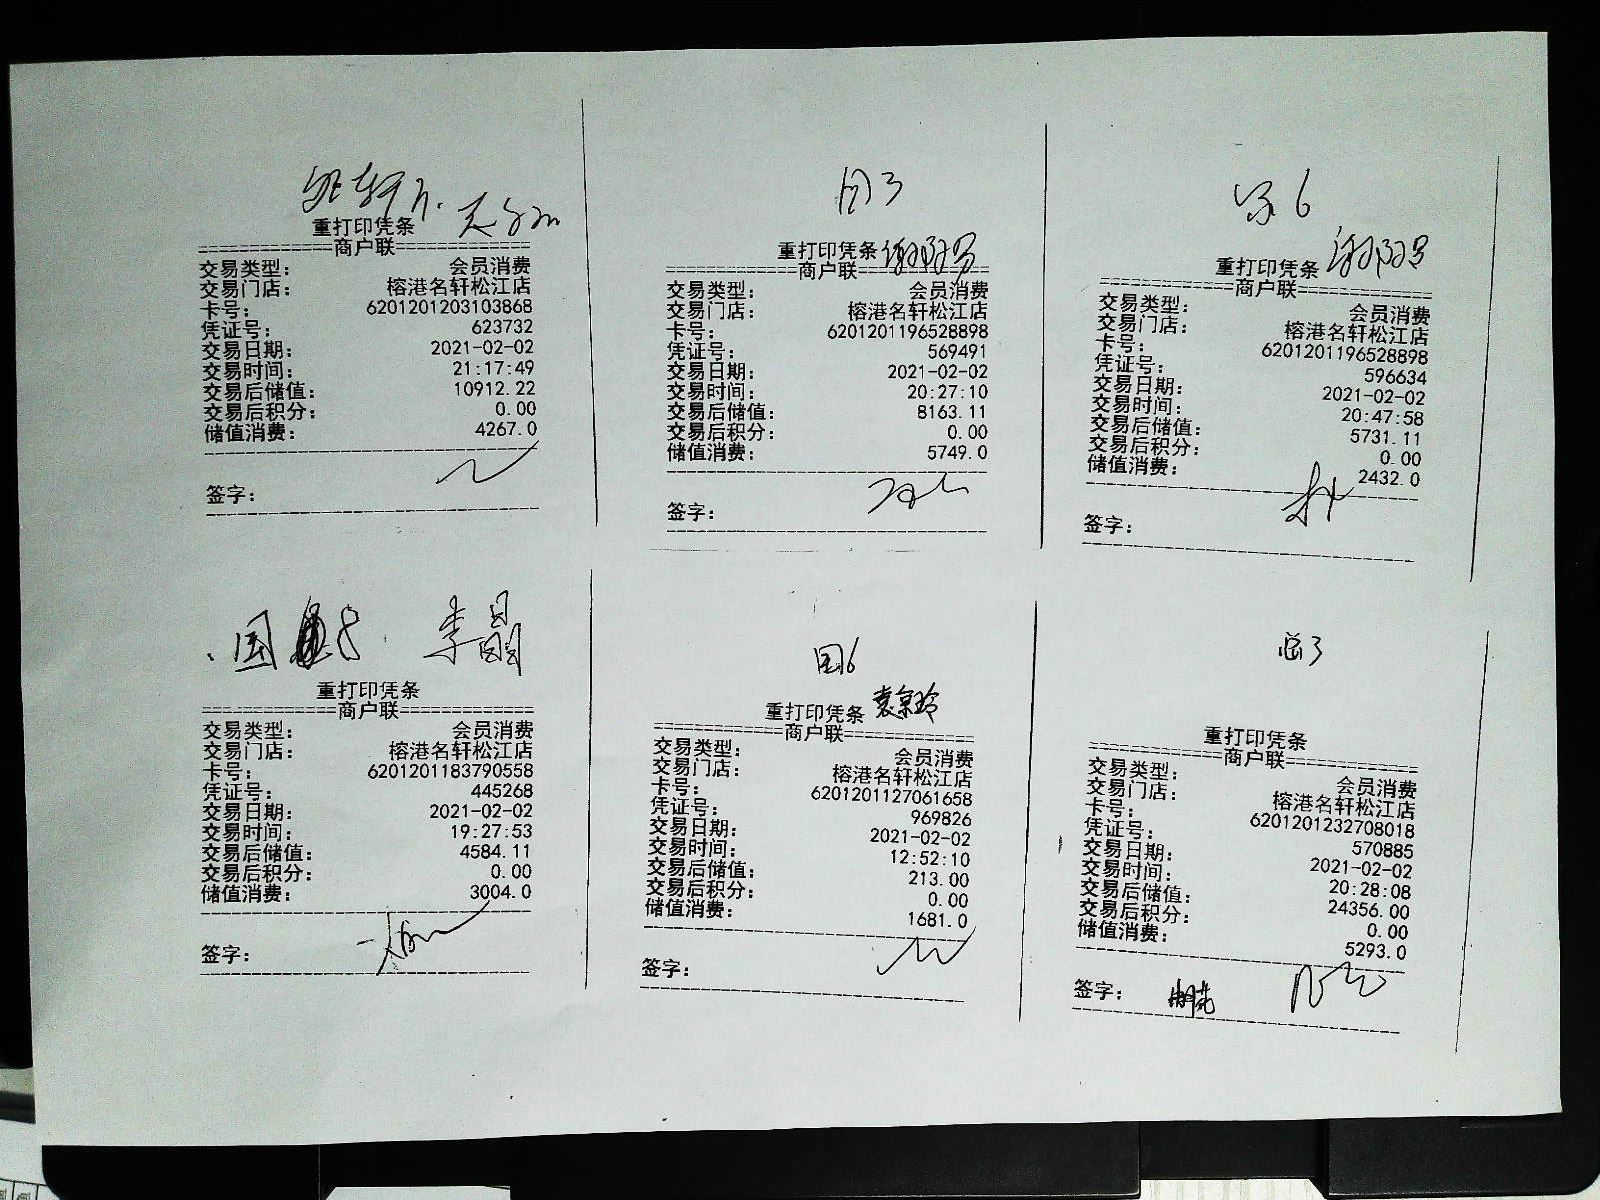 重打印凭条
============商户联============
交易类型： 会员消费
交易门店： 榕港名轩松江店
卡号： 6201201203103868
凭证号： 623732
交易日期： 2021-02-02
交易时间： 21:17:49
交易后储值： 10912.22
交易后积分： 0.00
储值消费： 4267.0
签字：
3
重打印凭条
============商户联============
交易类型： 会员消费
交易门店： 榕港名轩松江店
卡号： 6201201196528898
凭证号： 569491
交易日期： 2021-02-02
交易时间： 20:27:10
交易后储值： 8163.11
交易后积分： 0.00
储值消费： 5749.0
签字：
6
重打印凭条
============商户联============
交易类型： 会员消费
交易门店： 榕港名轩松江店
卡号： 6201201196528898
凭证号： 596634
交易日期： 2021-02-02
交易时间： 20:47:58
交易后储值： 5731.11
交易后积分： 0.00
储值消费： 2432.0
签字：
国 8 李
重打印凭条
============商户联============
交易类型： 会员消费
交易门店： 榕港名轩松江店
卡号： 6201201183790558
凭证号： 445268
交易日期： 2021-02-02
交易时间： 19:27:53
交易后储值： 4584.11
交易后积分： 0.00
储值消费： 3004.0
签字：
国6
重打印凭条 袁京玲
============商户联============
交易类型： 会员消费
交易门店： 榕港名轩松江店
卡号： 6201201127061658
凭证号： 969826
交易日期： 2021-02-02
交易时间： 12:52:10
交易后储值： 213.00
交易后积分： 0.00
储值消费： 1681.0
签字：
3
重打印凭条
============商户联============
交易类型： 会员消费
交易门店： 榕港名轩松江店
卡号： 6201201232708018
凭证号： 570885
交易日期： 2021-02-02
交易时间： 20:28:08
交易后储值： 24356.00
交易后积分： 0.00
储值消费： 5293.0
签字：